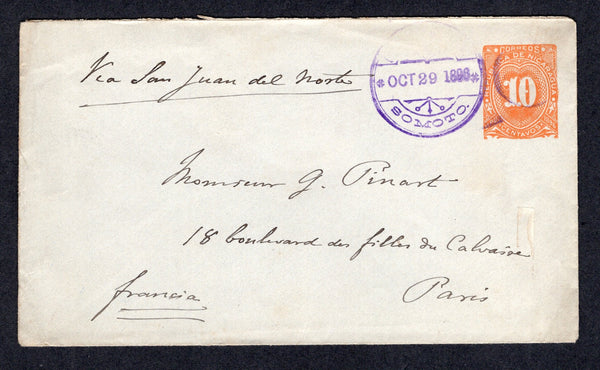 Via San Juan del Norte
* OCT 29 1896 *
SOMOTO.
CORREOS
DE NICARAGUA
10
CENTAVOS
Monsieur G. Pinart
18 boulevard des filles du Calvaire
Paris
francia